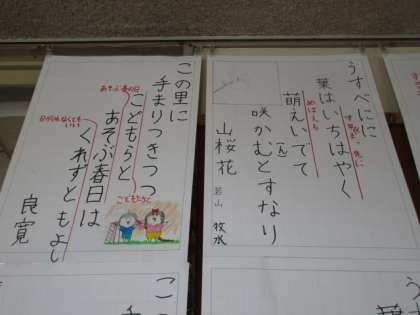 うすべにに
葉はいちはやく
すばやく・先に
萌えいでて
めばえる
咲かむとすなり
(ん)
山桜花
若山 牧水
この里に
手まりつきつつ
こどもらと
あそぶ春の日
あそぶ春日は
こどもたちと
くれずともよし
日がくれなくてもいい
良寛
この
手